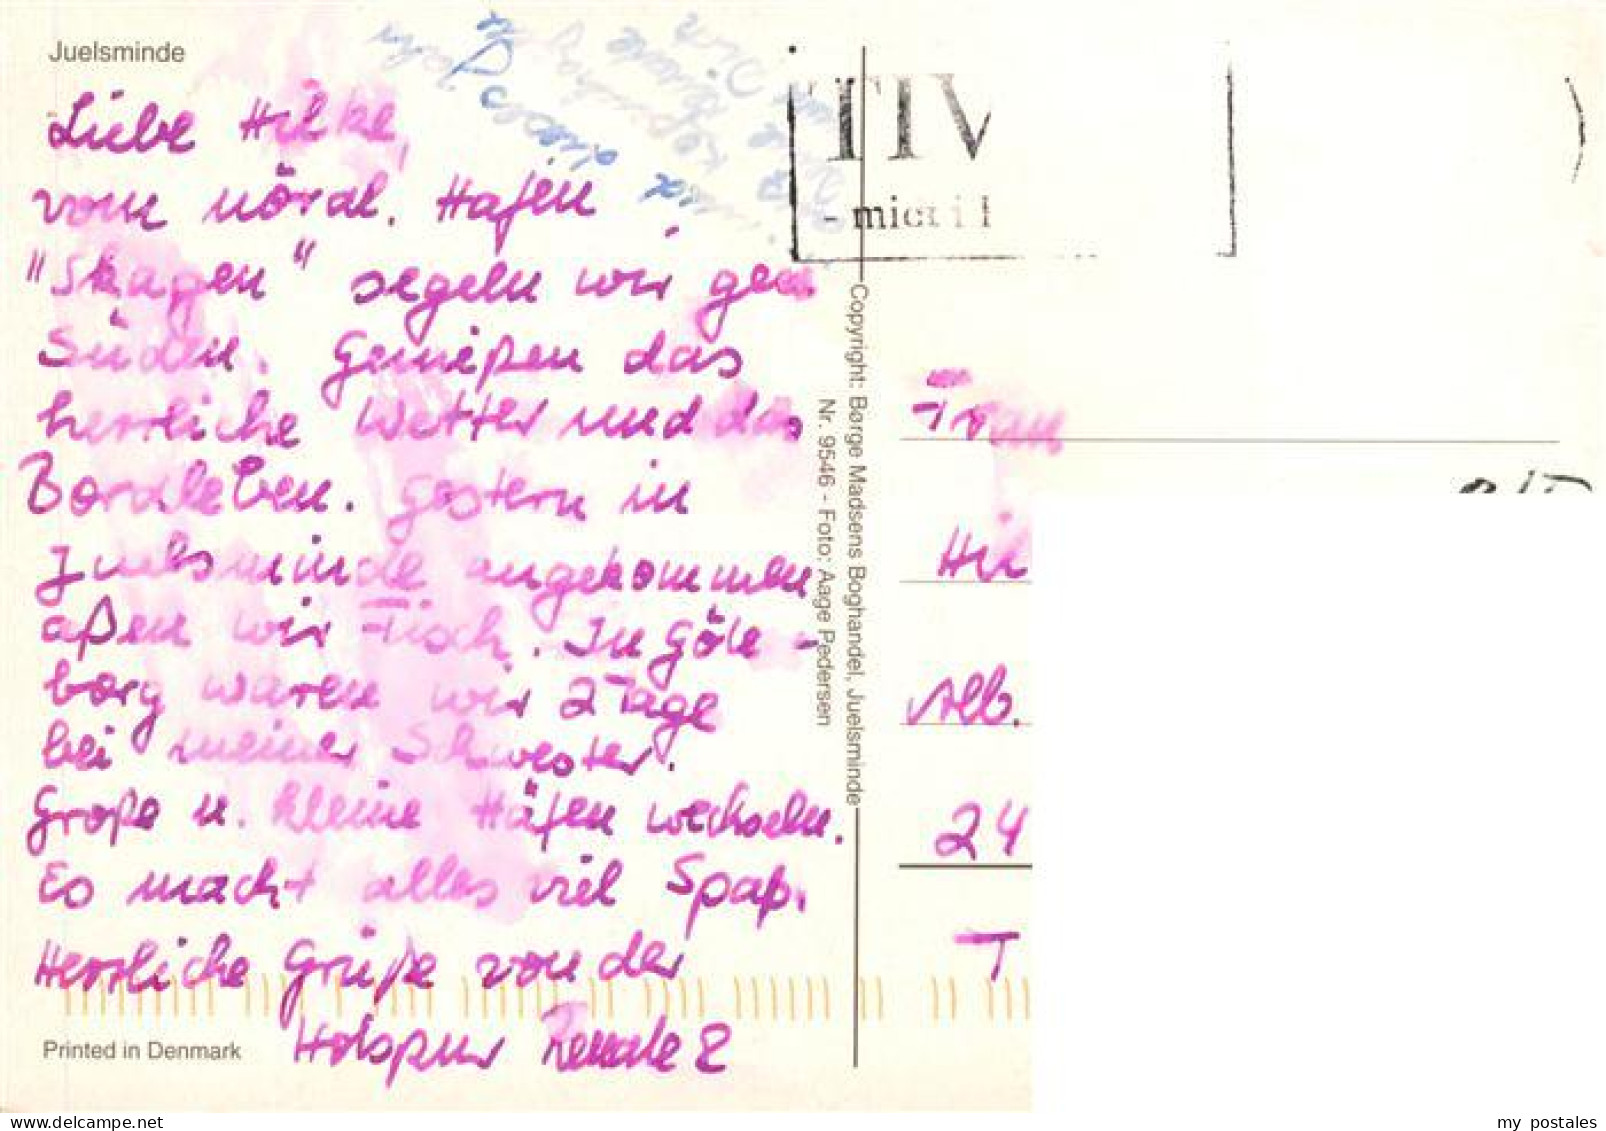 Juelsminde
Liebe Hilke,
vom nördl. Hafen
"Skagen" segeln wir gen
Süden. Genießen das
herrliche Wetter und das
Bordleben. Gestern in
Juelsminde angekommen
aßen wir Fisch. In Göte-
borg waren wir 2 Tage
bei meiner Schwester.
Große u. kleine Häfen wechseln.
Es macht alles viel Spaß.
Herzliche Grüße von der
Renate
Printed in Denmark
Copyright: Børge Madsens Boghandel, Juelsminde
Nr. 9546 - Foto: Aage Pedersen
TIV
Frau
Hil
Alb.
24
T
my postales